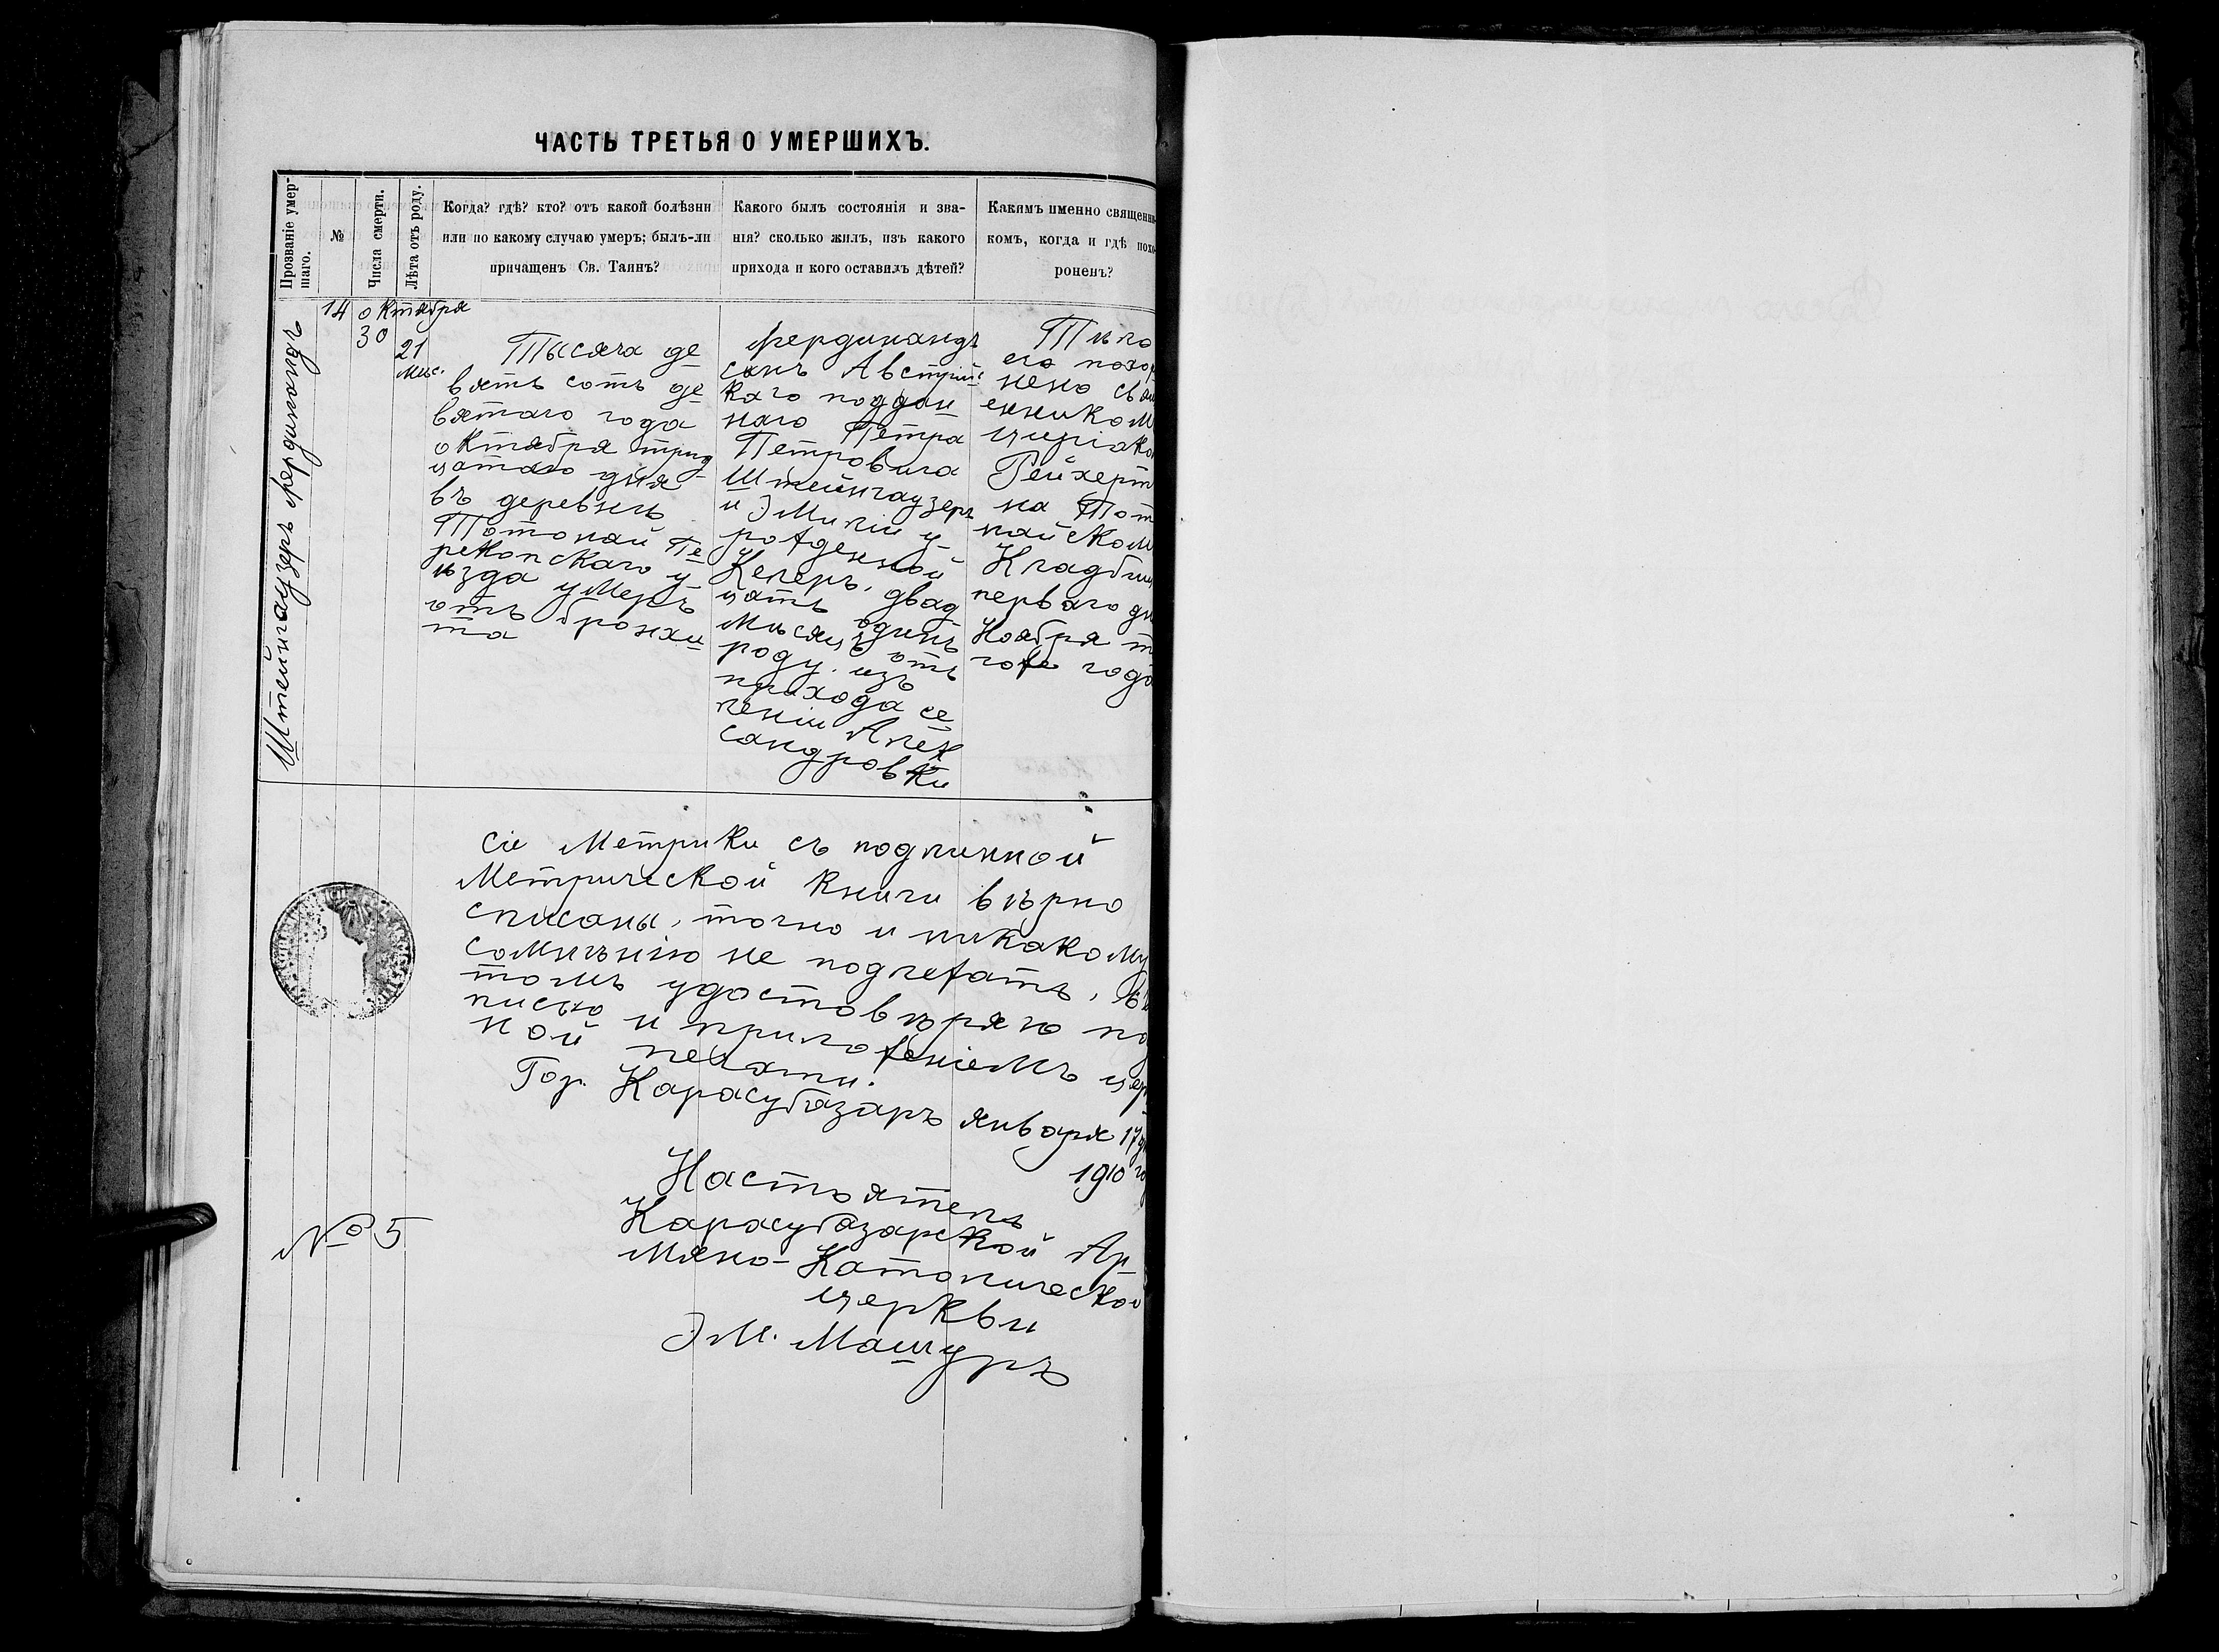 ЧАСТЬ ТРЕТЬЯ О УМЕРШИХЪ.
Прозваніе умер-
шаго.
№
Числа смерти.
Лѣта отъ роду.
Когда? гдѣ? кто? отъ какой болѣзни
или по какому случаю умеръ; былъ-ли
причащенъ Св. Таинъ?
Какого былъ состоянія и зва-
нія? сколько жилъ, изъ какого
прихода и кого оставилъ дѣтей?
Какимъ именно священни-
комъ, когда и гдѣ похо-
роненъ?
Штейнгаузеръ Фердинандъ
14
октября
30
21
мѣс.
Тысяча де
вять сотъ де
вятаго года
октября трид
цатаго дня
въ деревнѣ
Тотонай Пе
рекопскаго у-
ѣзда умеръ
отъ бронхи
та
Фердинандъ
сынъ Австрійс
каго поддан
наго Петра
Петровича
Штейнгаузеръ
и Эмиліи у-
рожденной
Келеръ. двад
цать одинъ
мѣсяцъ отъ
роду. изъ
прихода се
ленiи Алек
сандровки
Тѣло
его похор
нено свящ
енником
Циріако
Рейхерт
на Тот
найском
Кладбищ
перваго дн
Ноября т
гоже года
Сіе Метрики съ подлинной
Метрической книги вѣрно
списаны, точно и никакому
сомнѣнію не подлежатъ, въ
томъ удостовѣряю по
писью и приложеніемъ цер
ной печати.
Гор. Карасубазаръ января 17 д
1910 го
Настоятель
Карасубазарской Ар-
мяно-Католической
церкви
Эм. Машуръ
№ 5